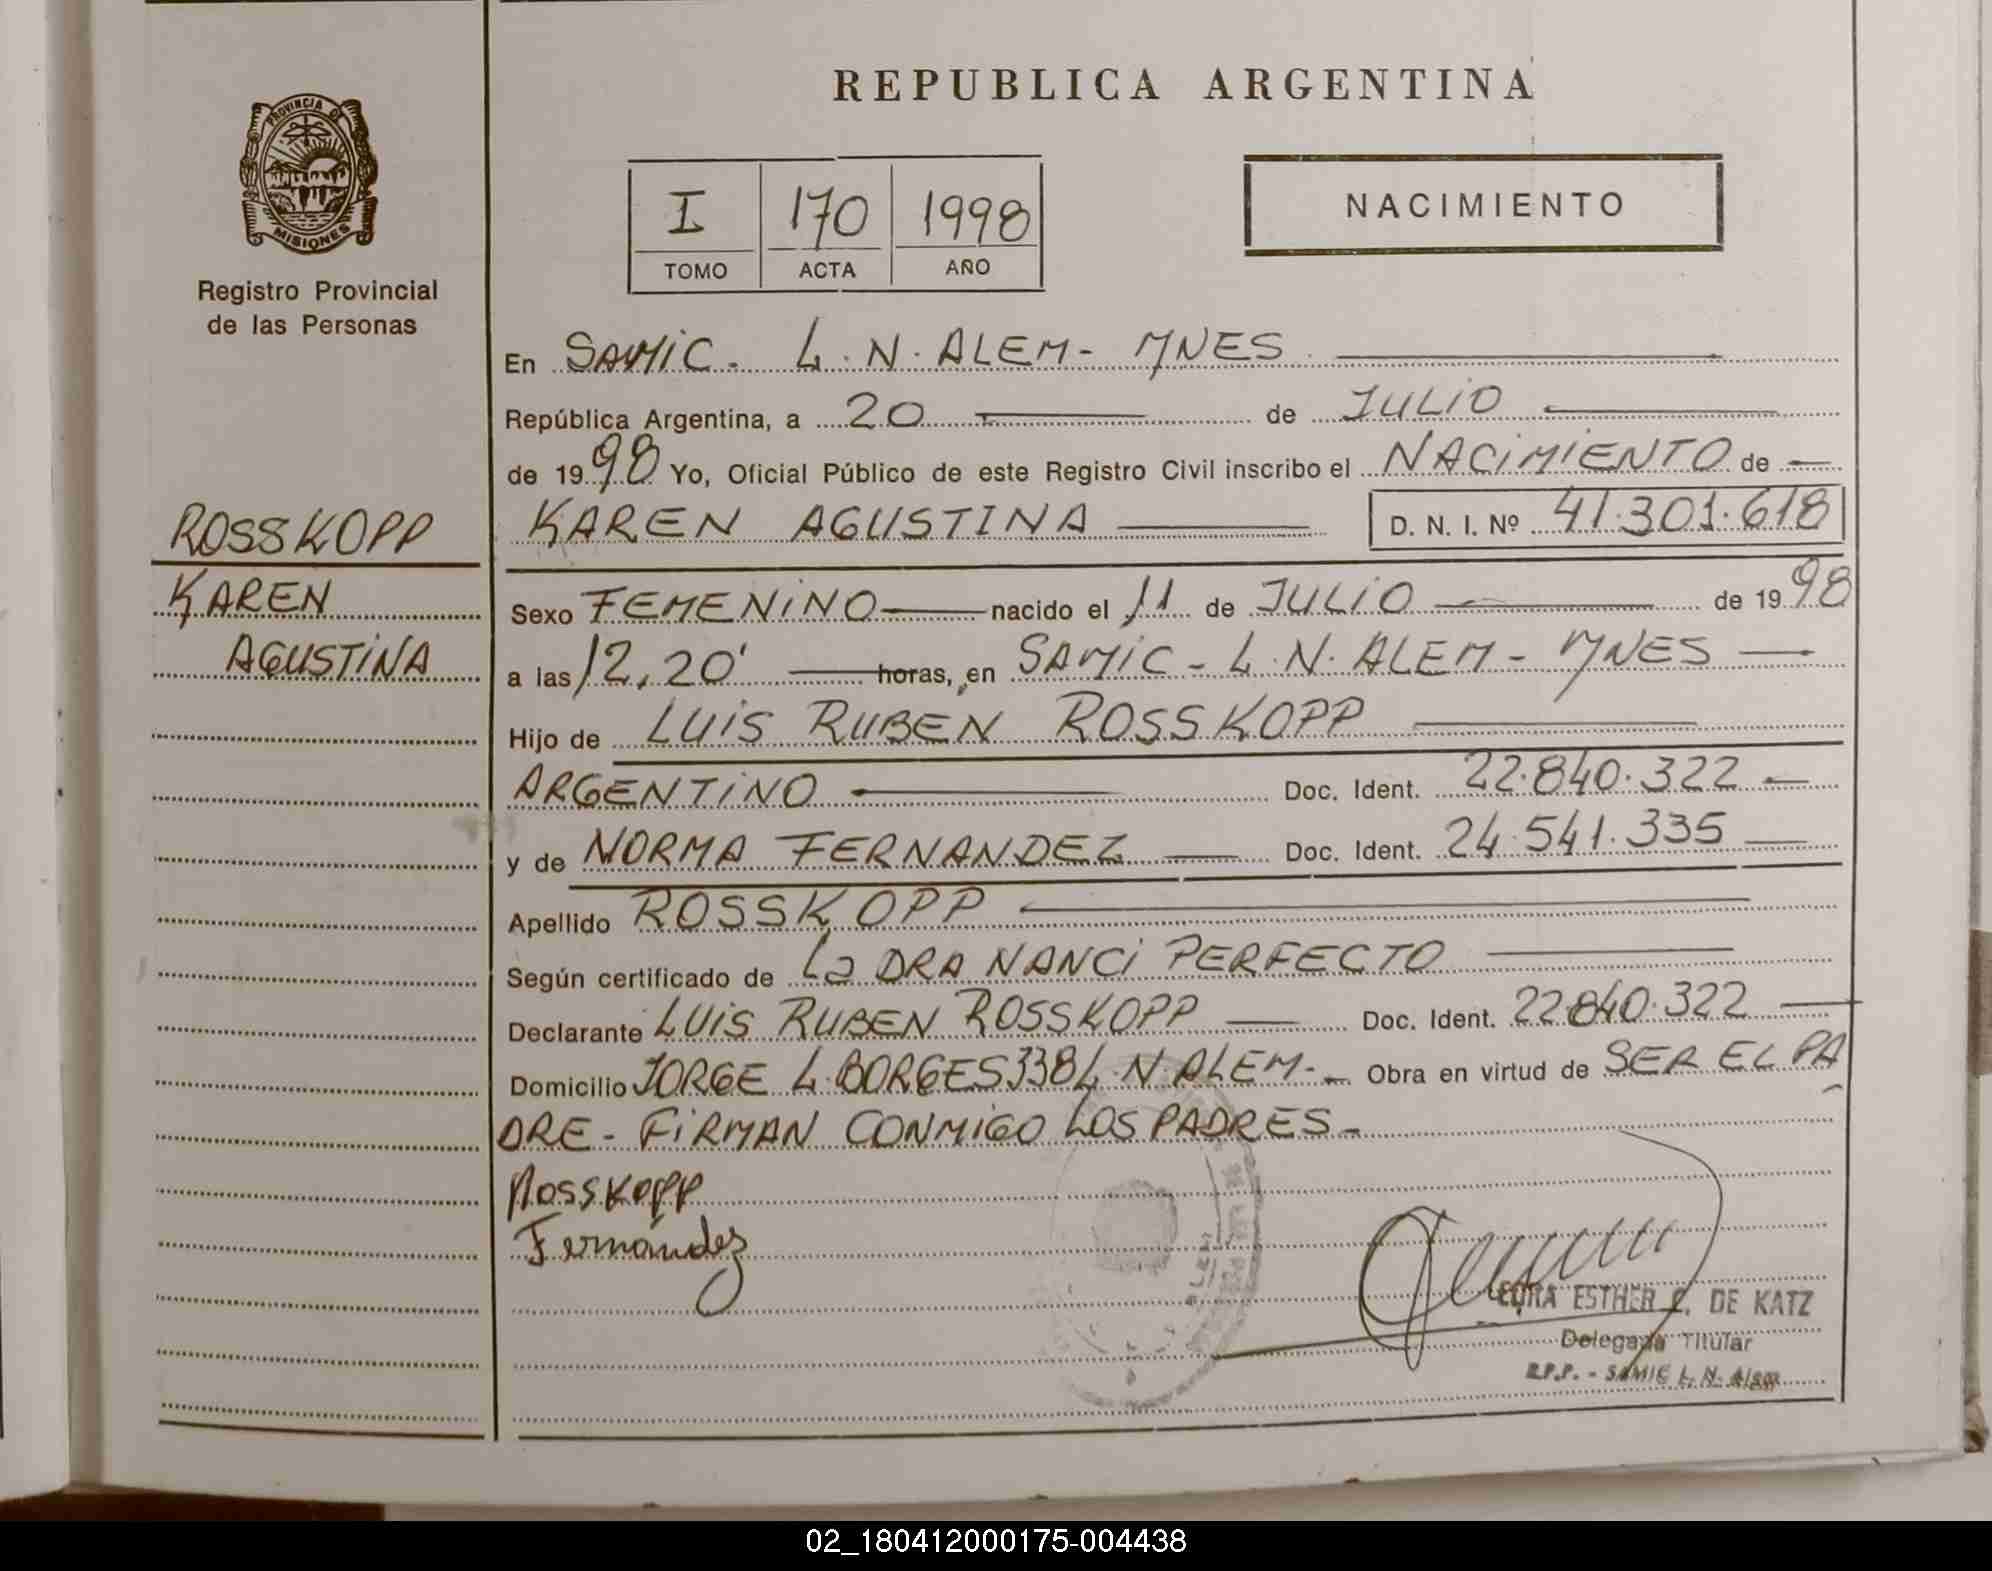 REPUBLICA ARGENTINA
PROVINCIA DE
MISIONES
Registro Provincial
de las Personas
I 170 1998
TOMO ACTA AÑO
NACIMIENTO
En SAMIC - L. N. ALEM - MNES
República Argentina, a 20 de JULIO
de 1998 Yo, Oficial Público de este Registro Civil inscribo el NACIMIENTO de
KAREN AGUSTINA D. N. I. Nº 41.301.618
ROSSKOPP
KAREN
AGUSTINA
Sexo FEMENINO nacido el 11 de JULIO de 1998
a las 12,20' horas, en SAMIC - L. N. ALEM - MNES
Hijo de LUIS RUBEN ROSSKOPP
ARGENTINO Doc. Ident. 22.840.322
y de NORMA FERNANDEZ Doc. Ident. 24.541.335
Apellido ROSSKOPP
Según certificado de La DRA NANCI PERFECTO
Declarante LUIS RUBEN ROSSKOPP Doc. Ident. 22840.322
Domicilio JORGE L. BORGES 338 L. N. ALEM - Obra en virtud de SER EL PA
DRE - FIRMAN CONMIGO LOS PADRES -
Rosskopp
Fernández
ESTHER C. DE KATZ
Delegada Titular
R.P.P. - SAMIC L. N. Alem
02_180412000175-004438